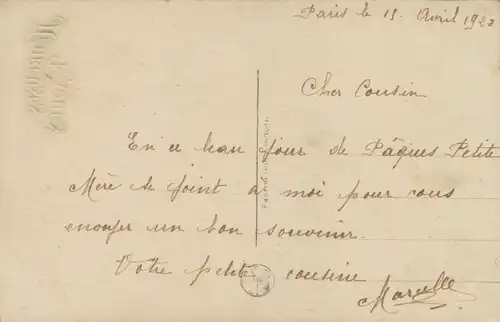 Paris le 11 Avril 1923
Cher Cousin
En ce beau jour de Pâques Petite
Mère se joint à moi pour vous
envoyer un bon souvenir.
Votre petite cousine
Marcelle